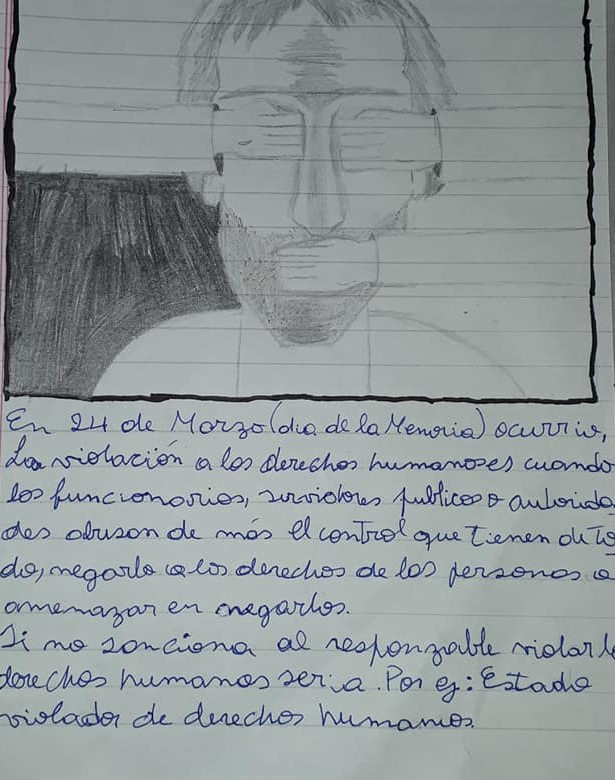 En 24 de Marzo (dia de la Memoria) ocurrio,
La violación a los derechos humanos es cuando
los funcionarios, servidores publicos o autorida
des abusan de más el control que tienen de to
do, negarlo a los derechos de las personas o
amenazar en negarlos.
Si no sanciona al responzable violar l
derechos humanos seria. Por ej: Estado
violador de derechos humanos.